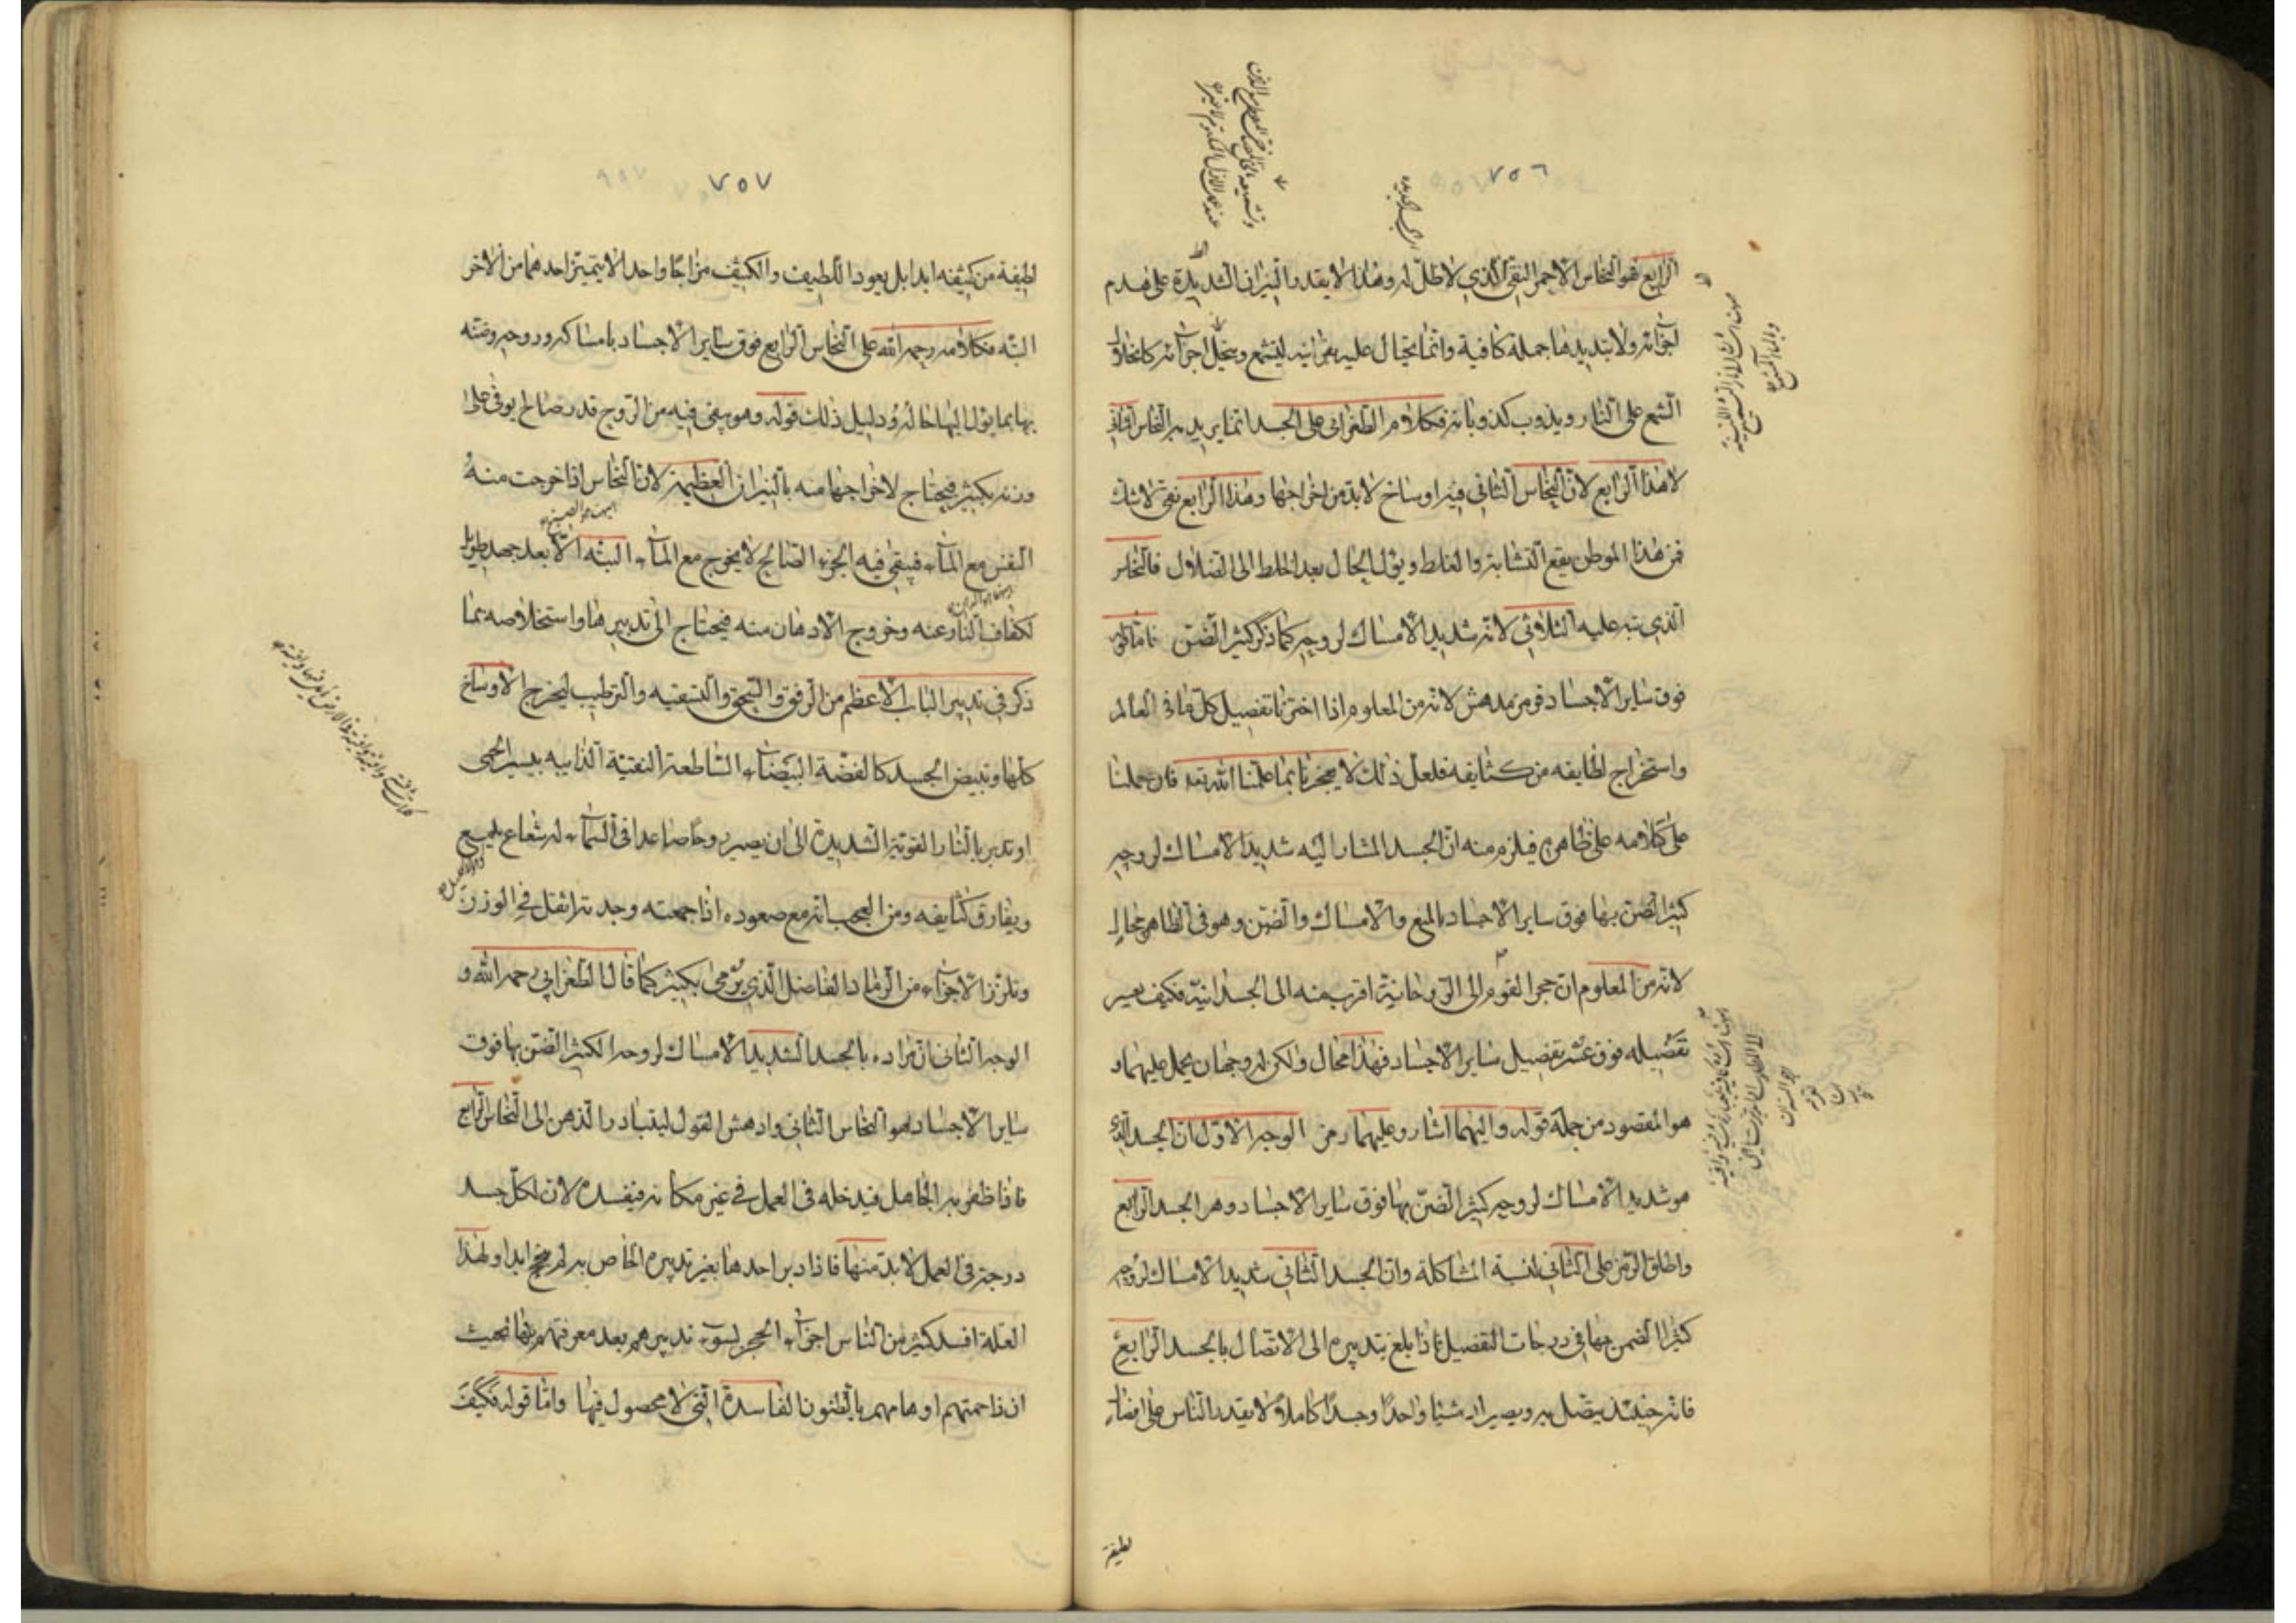 ٧٥٦
الرابع فهو النحاس الاحمر النقي الذي لا ظل له وهذا لا يقدر النيران الشديدة على هدم
اجزائه ولا تبديدها جملة كافية وانما يحتال عليه بقرابته ليتشمع وينحل اجزائه كانحلال
الشمع على النار ويذوب كذوبانه فكلام الطغرائي على الجسد انما يريد به النحاس الثاني
لا هذا الرابع لان النحاس الثاني فيه اوساخ لا بد من اخراجها وهذا الرابع نقي لا شك
فمن هذا الموطن يقع التشابه والغلط ويؤل الحال بعد الخلط الى الضلال فالنحاس
الذي نبه عليه الثلاثي لانه شديد الامساك لروحه كما ذكر كثير الضن
فوق ساير الاجساد فرمز مدهش لانه من المعلوم اذا اخترنا تفصيل كل ما في العالم
واستخراج لطايفه من كثايفه فلعل ذلك لا يعجزنا بما علمنا الله تعه فان حملنا
على كلامه على ظاهره فيلزم منه ان الجسد المشار اليه شديد الامساك لروحه
كثير الضن بها فوق ساير الاجساد بالمنع والامساك والضن وهو في الظاهر محال
لانه من المعلوم ان حجر القوم الى الروحانية اقرب منه الى الجسدانية فكيف يعسر
تفصيله فوق عسر تفصيل ساير الاجساد فهذا محال ولكن له وجهان يحمل عليهما و
هو المقصود من جملة قوله واليهما اشار وعليهما رمز الوجه الاول ان الجسد الذي
هو شديد الامساك لروحه كثير الضن بها فوق ساير الاجساد وهو الجسد الرابع
واطلق الرمز على الثاني لنسبة المشاكلة وان الجسد الثاني شديد الامساك لروحه
كثير الضن بها في درجات التفصيل فاذا بلغ بتدبيره الى الاتصال بالجسد الرابع
فانه حينئذ يتصل به ويصير له شيئا واحدا وجسدا كاملا لا يقدر الناس على افضال
لطيفة
٧٥٧
لطيفة من كثيفه ابدا بل يعود اللطيف والكثيف مزاجا واحدا لا يتميز احدهما من الاخر
البتة فكلامه رحمه الله على النحاس الرابع فوق ساير الاجساد بامساكه روحه وضنه
بها بما يؤل اليها حاله ودليل ذلك قوله وهو يبقى فيه من الروح قدر صالح يوفي على
وزنه بكثير فيحتاج لاخراجها منه بالنيران العظيمة لان النحاس اذا خرجت منه
النفس مع الماء فيبقى فيه الجزء الصالح لا يخرج مع الماء البتة الا بعد جهد طويل
لكفاف النار عنه وخروج الادهان منه فيحتاج الى تدبيرها واستخلاصه بما
ذكر في تدبير الباب الاعظم من الرفق والسحق والتسقيه والترطيب ليخرج الاوساخ
كلها وتبيض الجسد كالفضة البيضاء الساطعة النقية الذايبه بيسير الحمى
او تدبر بالنار القوية الشديدة الى ان يصير روحا صاعدا في السماء له شعاع يلمع
ويفارق كثايفه ومن العجب انه مع صعوده اذا جمعته وجدته اثقل في الوزن
وتلزز الاجزاء من الرماد الفاضل الذي يرمى بكثير كما قال الطغرائي رحمه الله و
الوجه الثاني ان مراده بالجسد الشديد الامساك لروحه الكثير الضن بها فوق
ساير الاجساد هو النحاس الثاني وادهش القول ليتبادر الذهن الى النحاس الرابع
فاذا ظفر به الجاهل فيدخله في العمل في غير مكانه فيفسده لان لكل جسد
درجة في العمل لا بد منها فاذا دبر احدها بغير تدبيره الخاص به لم ينجح ابدا ولهذا
العلة افسد كثير من الناس اجزاء الحجر لسوء تدبيرهم بعد معرفتهم بها بحيث
ان زاحمتهم اوهامهم بالظنون الفاسدة التي لا محصول فيها واما قوله فكيف